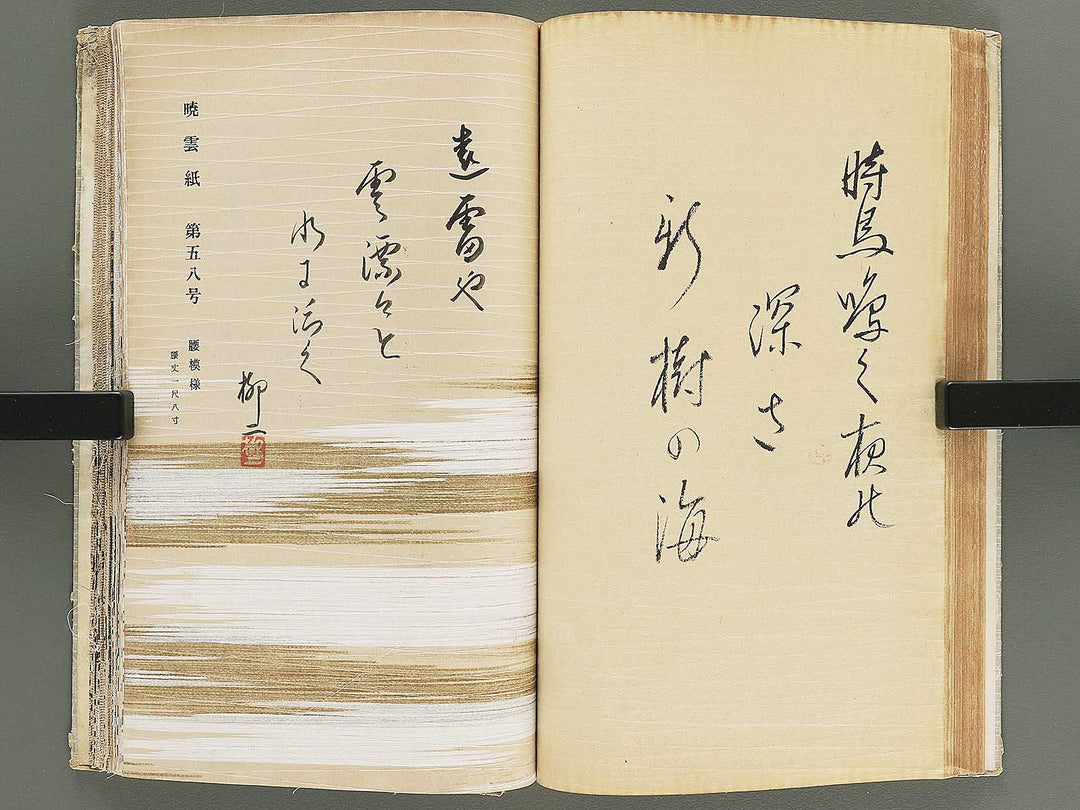 時鳥鳴く夜の
深さ
新樹の海
遠雷や
雲漂々と
水に
柳二
暁雲紙 第五八号
腰模様
腰丈一尺八寸